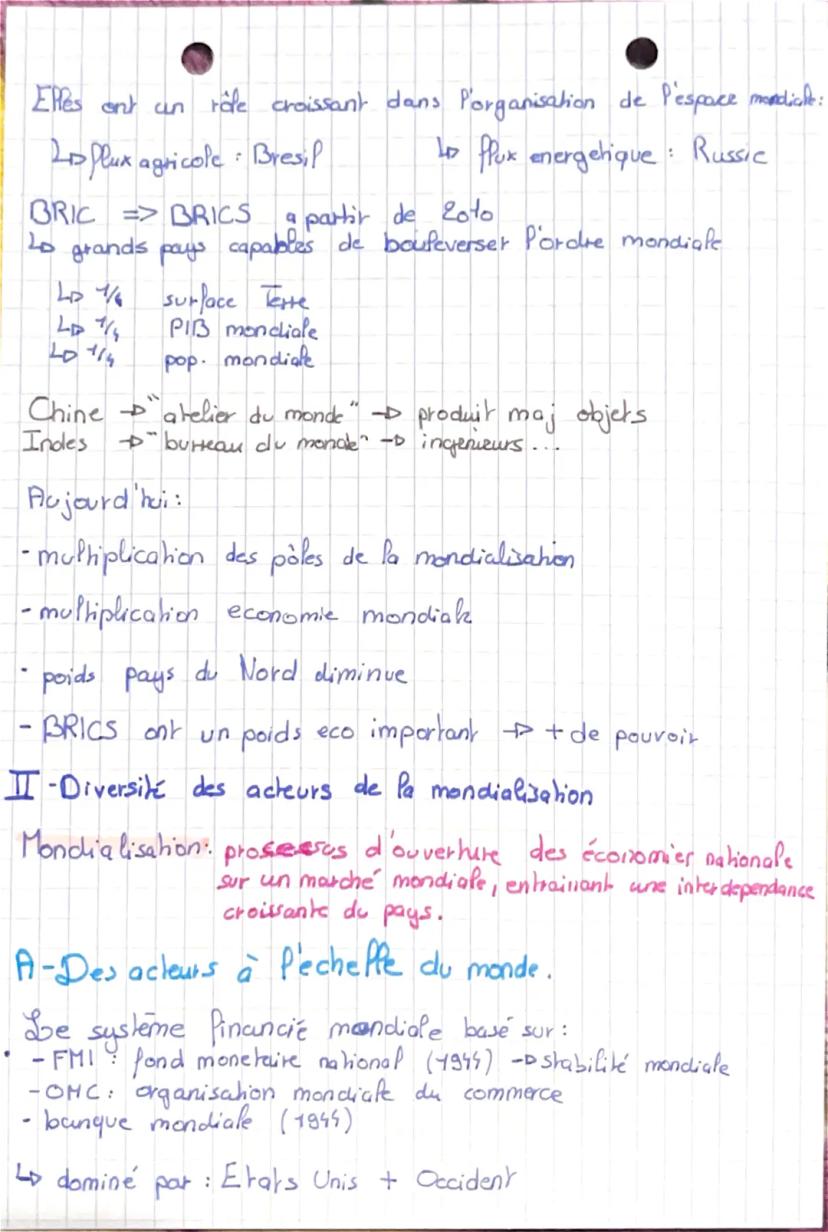 Elles ont un rôle croissant dans l'organisation de l'espace mondiale :
↳ flux agricole : Bresil ↳ flux energetique : Russie
BRIC => BRICS a partir de 2010
↳ grands pays capables de bouleverser l'ordre mondiale
↳ 1/4 surface Terre
↳ 1/4 PIB mondiale
↳ 1/4 pop. mondiale
Chine → "atelier du monde" → produit maj objets
Indes → "bureau du monde" → ingénieurs...
Aujourd'hui :
- multiplication des pôles de la mondialisation
- multiplication economie mondiale
- poids pays du Nord diminue
- BRICS ont un poids eco important → + de pouvoir
II - Diversité des acteurs de la mondialisation
Mondialisation : processus d'ouverture des économies nationale
sur un marché mondiale, entrainant une interdependance
croissante du pays.
A - Des acteurs à l'echelle du monde.
Le système financié mondiale basé sur :
- FMI : fond monetaire national (1944) → stabilité mondiale
- OMC : organisation mondiale du commerce
- banque mondiale (1944)
↳ dominé par : Etats Unis + Occident